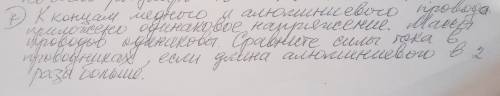 7) К концам медного и алюминиевого провода
приложено одинаковое напряжение. Массы
проводов одинаковы. Сравните силы тока в
проводниках, если длина алюминиевого в 2
раза больше.